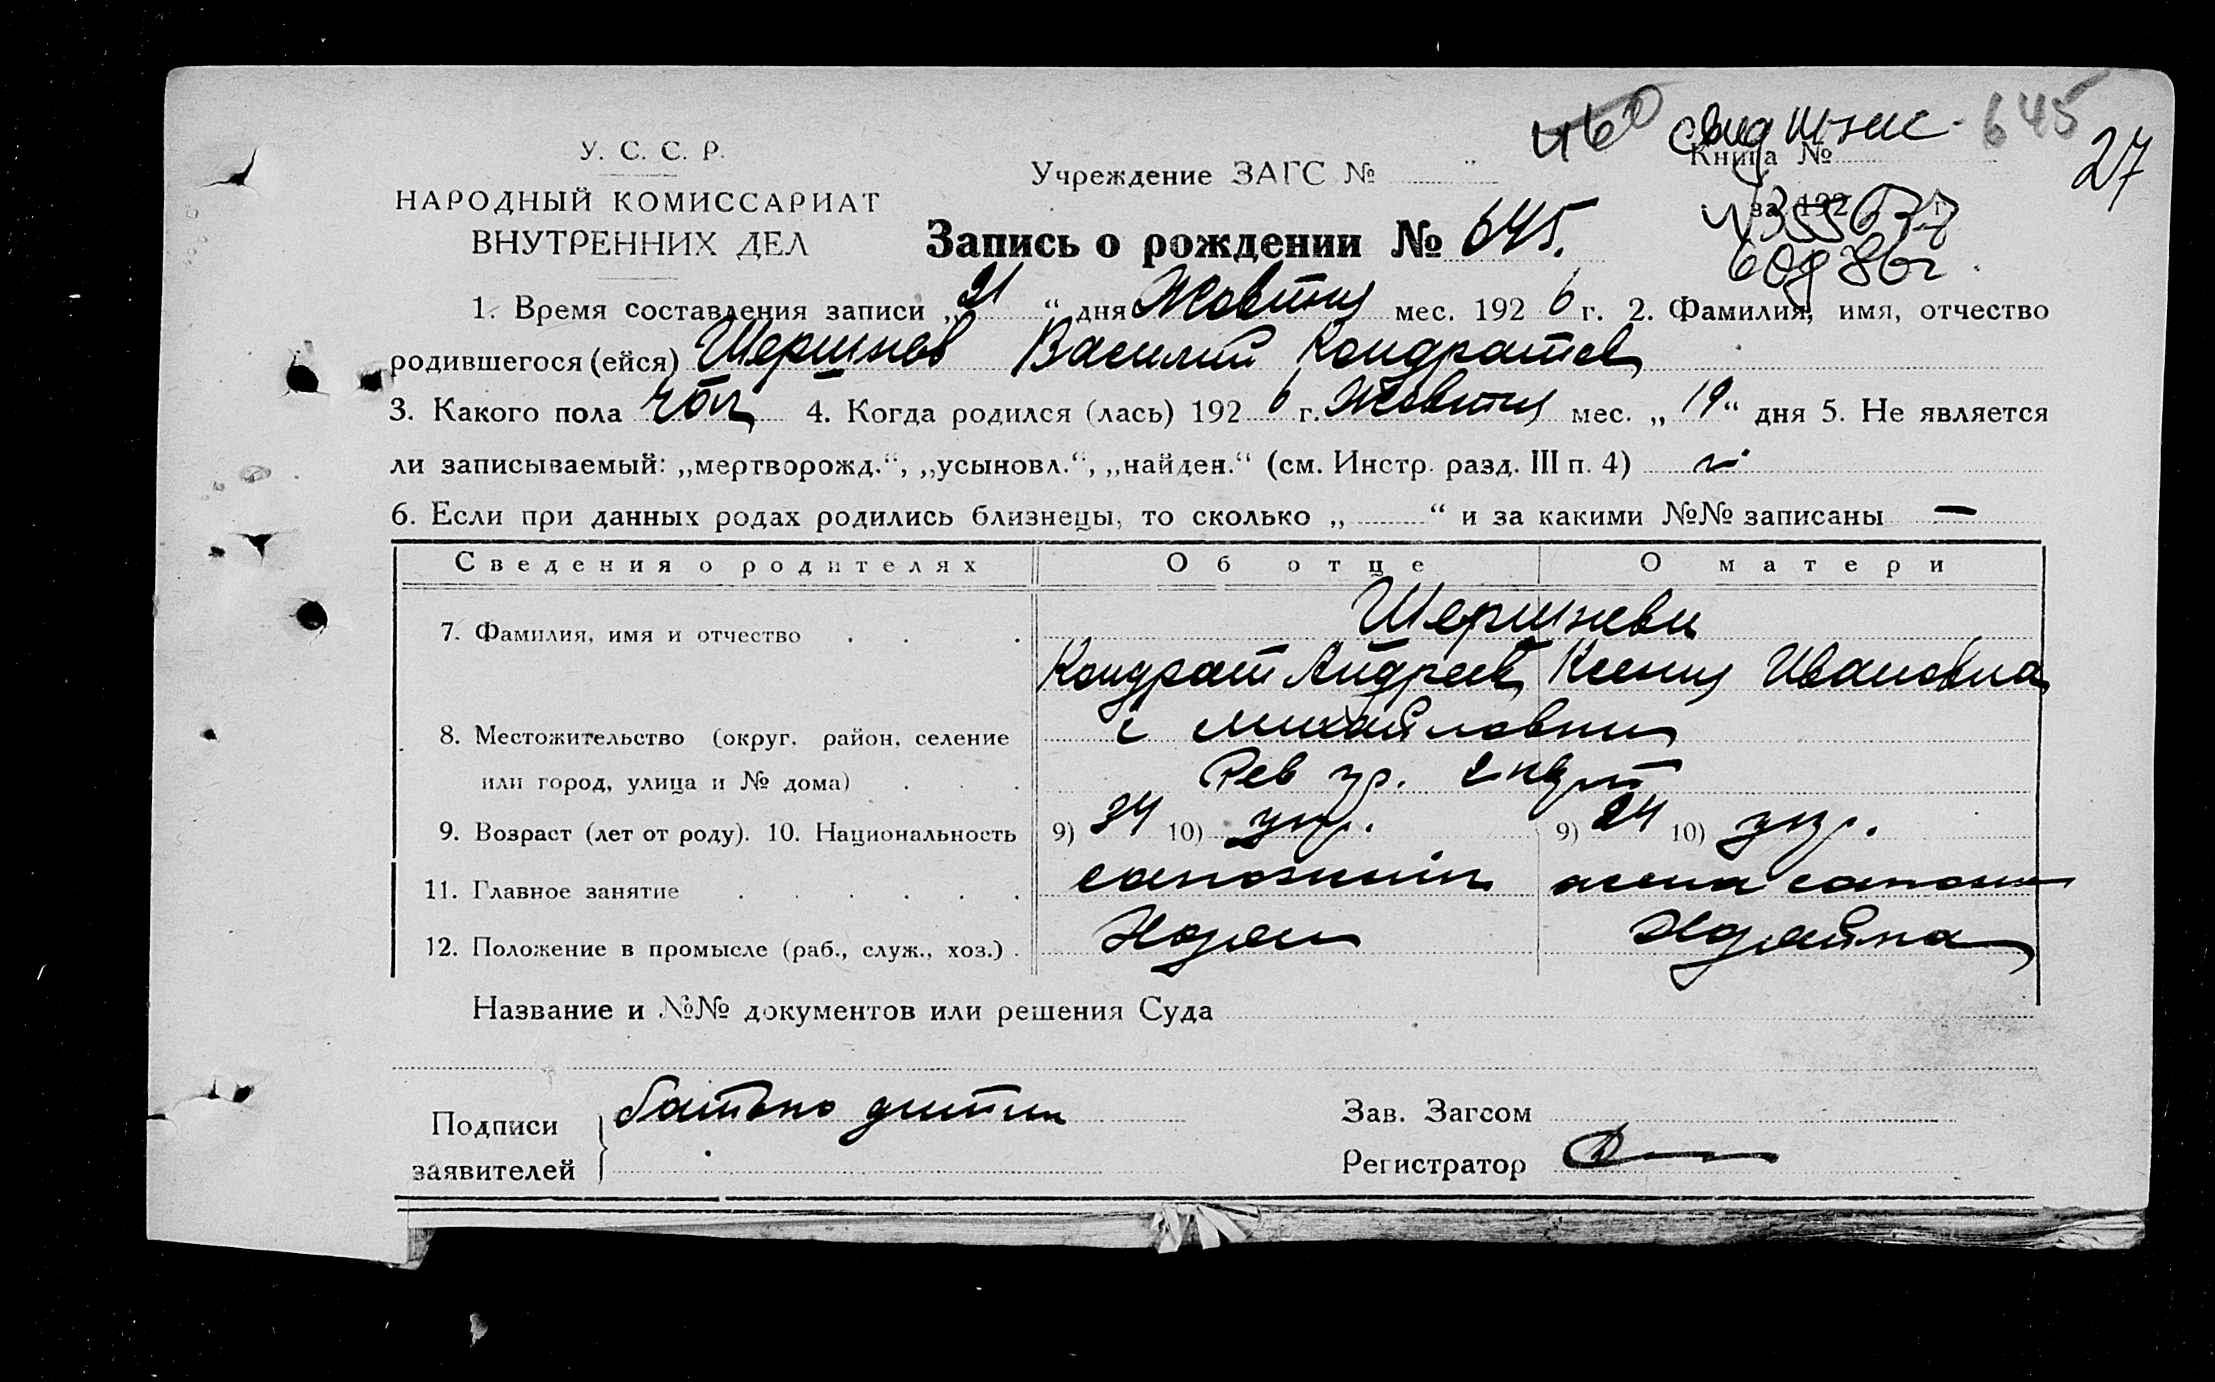 460 645
27
У. С. С. Р.
НАРОДНЫЙ КОМИССАРИАТ
ВНУТРЕННИХ ДЕЛ
Учреждение ЗАГС № Книга №
за 192 г.
Запись о рождении № 645.
1. Время составления записи „21“ дня Жовтня мес. 1926 г. 2. Фамилия, имя, отчество
родившегося (ейся) Шершнев Василий Кондратов
3. Какого пола чол 4. Когда родился (лась) 1926 г. Жовтня мес. „19“ дня 5. Не является
ли записываемый: „мертворожд.“, „усыновл.“, „найден.“ (см. Инстр. разд. III п. 4)
6. Если при данных родах родились близнецы, то сколько „ “ и за какими №№ записаны —
Сведения о родителях Об отце О матери
7. Фамилия, имя и отчество Шершневи
Кондрат Андреев Ксения Ивановна
8. Местожительство (округ, район, селение с Михайловки
или город, улица и № дома) Рев
9. Возраст (лет от роду). 10. Национальность 9) 34 10) укр. 9) 24 10) укр.
11. Главное занятие
12. Положение в промысле (раб., служ., хоз.)
Название и №№ документов или решения Суда
Подписи заявителей батько дитини
Зав. Загсом
Регистратор